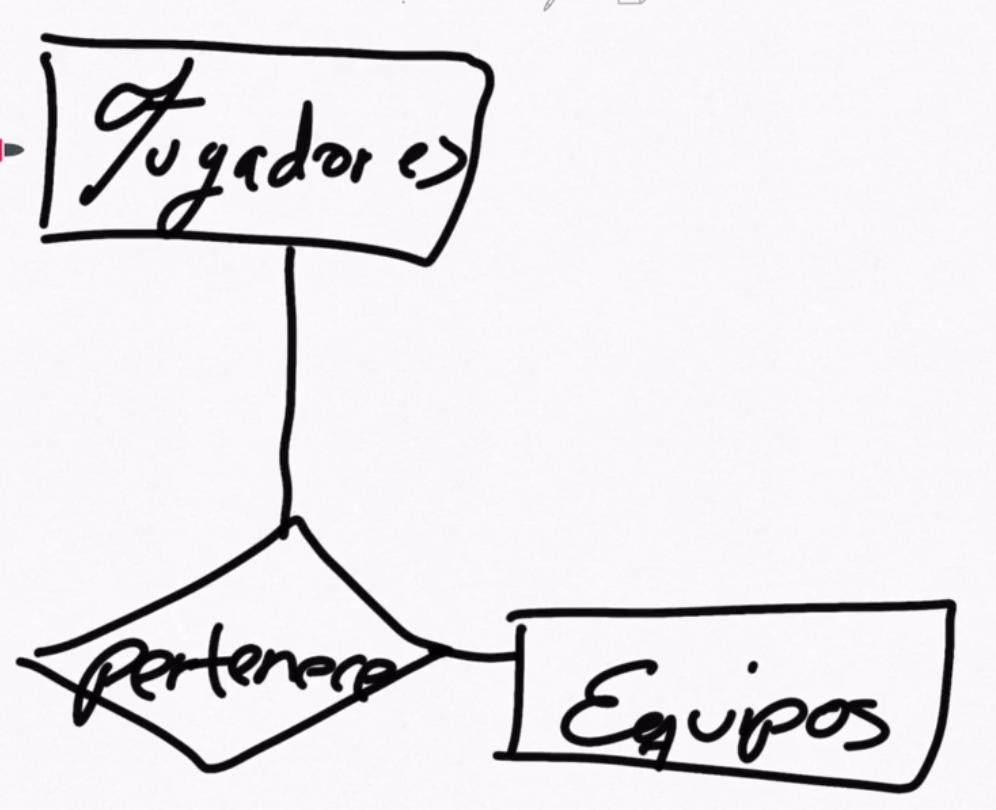 Jugadores
pertenece
Equipos